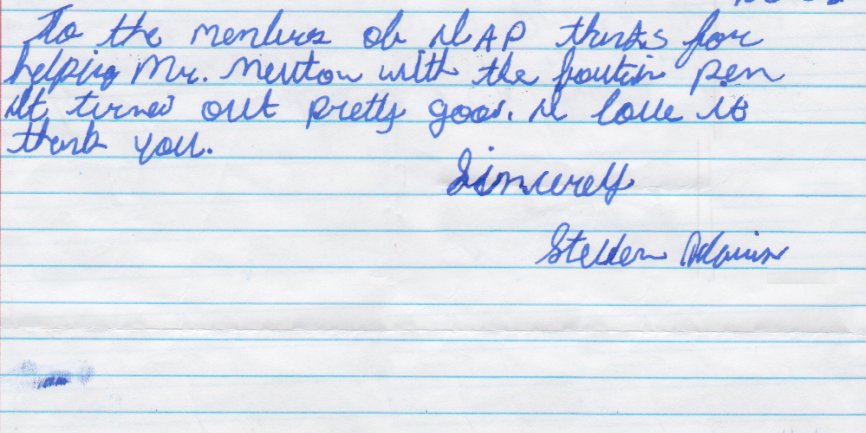 To the members of IAP thinks for
helping Mr. Newton with the foutin pen
It turned out pretty good. I love it
thank you.
Sincerely
Steven